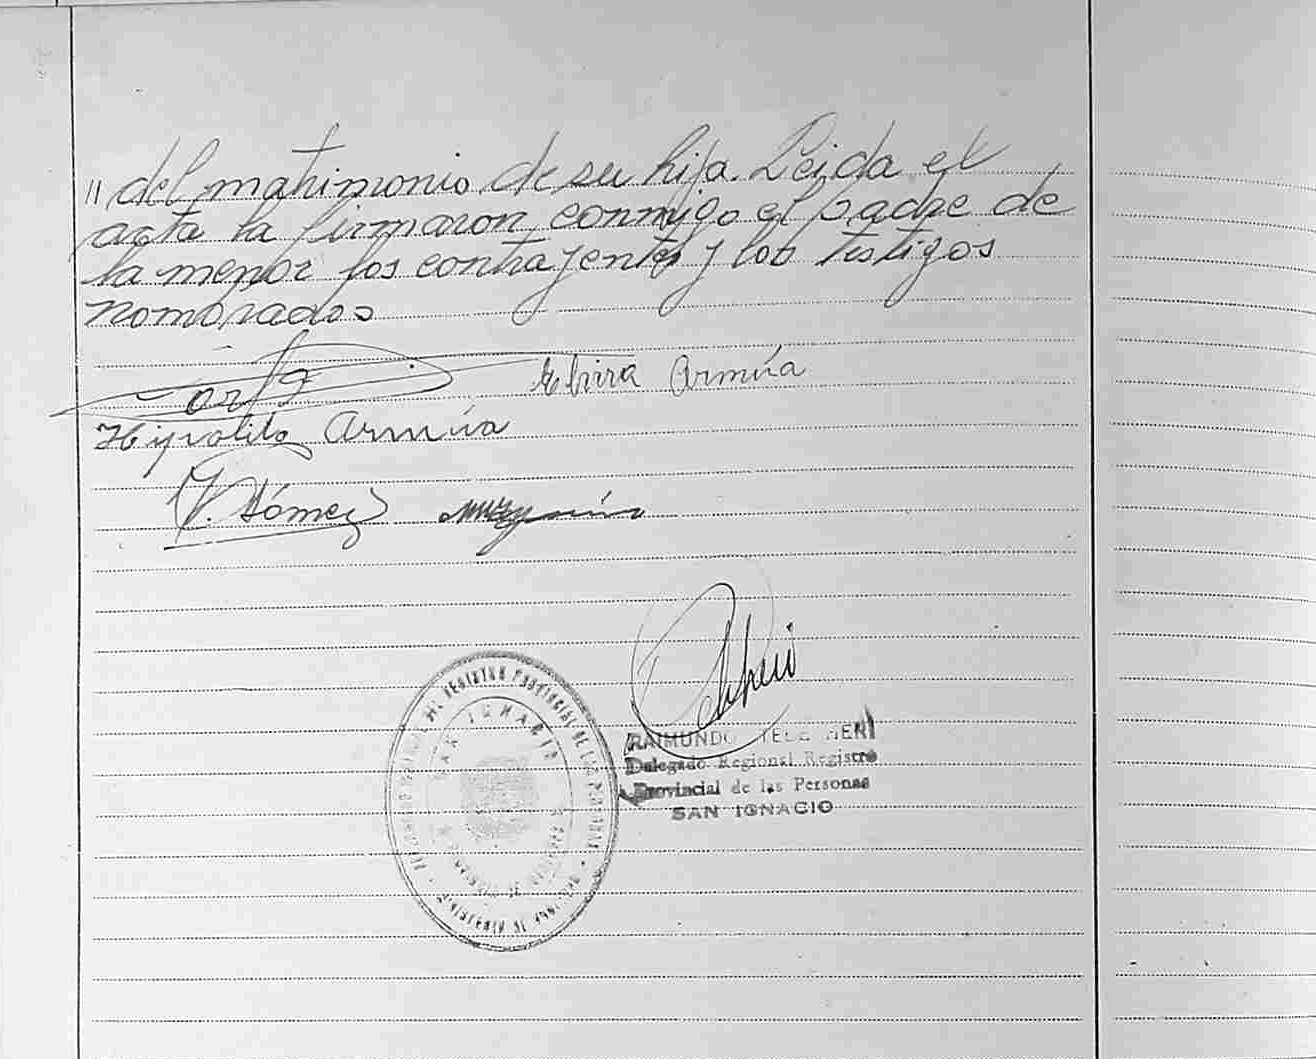 " del matrimonio de su hija. Leida el
acta la firmaron conmigo el padre de
la menor los contrayentes y los testigos
nombrados
Elvira Armúa
Hipolito Armúa
V. Gómez
REGISTRO PROVINCIAL DE LAS PERSONAS
SAN IGNACIO
RAIMUNDO
Delegado Regional Registro
Provincial de las Personas
SAN IGNACIO